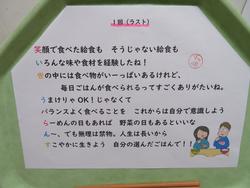 1組（ラスト）
笑顔で食べた給食も　そうじゃない給食も
いろんな味や食材を経験したね！
世の中には食べ物がいっぱいあるけれど、
毎日ごはんが食べられるってすごくありがたいね。
うまけりゃOK！じゃなくて
バランスよく食べることを　これからは自分で意識しよう
らーめんの日もあれば　野菜の日もあるといいな
ん〜、でも無理は禁物。人生は長いから
すこやかに生きよう　自分の選んだごはんで！！